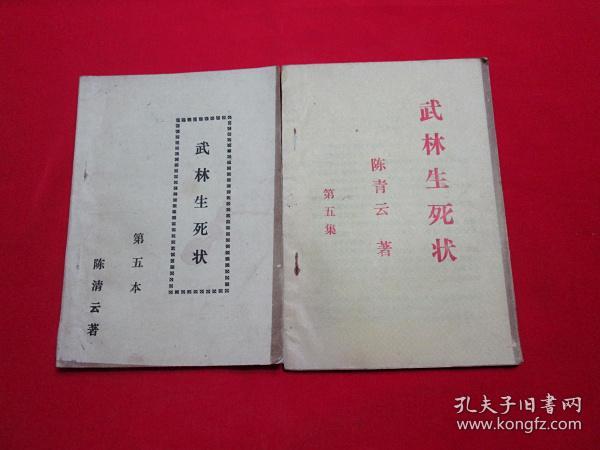 武林生死状
第五本
陈清云著
武林生死状
陈青云 著
第五集
孔夫子旧书网
www.kongfz.com